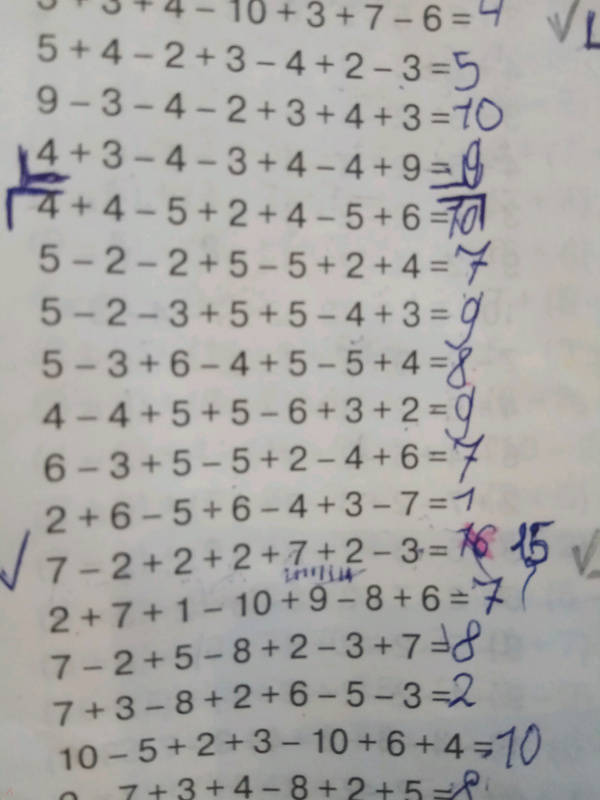 3 + 3 + 4 – 10 + 3 + 7 – 6 = 4
5 + 4 – 2 + 3 – 4 + 2 – 3 = 5
9 – 3 – 4 – 2 + 3 + 4 + 3 = 10
4 + 3 – 4 – 3 + 4 – 4 + 9 = 9
4 + 4 – 5 + 2 + 4 – 5 + 6 = 10
5 – 2 – 2 + 5 – 5 + 2 + 4 = 7
5 – 2 – 3 + 5 + 5 – 4 + 3 = 9
5 – 3 + 6 – 4 + 5 – 5 + 4 = 8
4 – 4 + 5 + 5 – 6 + 3 + 2 = 9
6 – 3 + 5 – 5 + 2 – 4 + 6 = 7
2 + 6 – 5 + 6 – 4 + 3 – 7 = 1
7 – 2 + 2 + 2 + 7 + 2 – 3 = 16 15
2 + 7 + 1 – 10 + 9 – 8 + 6 = 7
7 – 2 + 5 – 8 + 2 – 3 + 7 = 8
7 + 3 – 8 + 2 + 6 – 5 – 3 = 2
10 – 5 + 2 + 3 – 10 + 6 + 4 = 10
7 + 3 + 4 – 8 + 2 + 5 = 8